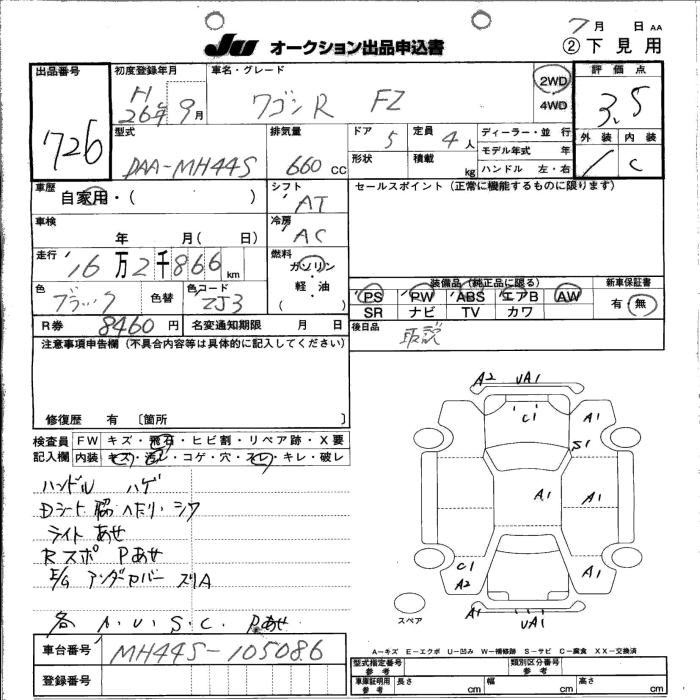 7月 日 AA
JU オークション出品申込書 ②下見用
出品番号
726
初度登録年月
H
26年9月
車名・グレード
ワゴンR FZ
2WD
4WD
評価点
3.5
外装 内装
C
型式
DAA-MH44S
排気量
660 cc
ドア
5
定員
4人
形状
積載
kg
ディーラー・並行
モデル年式 年
ハンドル 左・右
車歴
自家用・( )
シフト
AT
セールスポイント (正常に機能するものに限ります)
車検
年 月( 日)
冷房
AC
走行
16万2千866km
燃料
ガソリン
・
軽・油
( )
色
ブラック
色替
色コード
ZJ3
装備品 (純正品に限る)
PS PW ABS エアB AW
SR ナビ TV カワ
新車保証書
有・無
R券 8460円
名変通知期限 月 日
後日品
取説
注意事項申告欄 (不具合内容等は具体的に記入してください)
修復歴 有 〔箇所 〕
検査員 FW キズ・飛石・ヒビ割・リペア跡・X要
記入欄 内装 キズ・汚レ・コゲ・穴・スレ・キレ・破レ
ハンドル ハゲ
Dシート脇 へたり・シワ
ライト あせ
Rスポ Pあせ
E/G アンダーカバー ズリA
各 A.U.S.C. Pあせ
A2 UA1
C1 A1
S1
A1 A1
C1
A2 A1
A1 UA1
スペア
A-キズ E-エクボ U-凹み W-補修跡 S-サビ C-腐食 XX-交換済
車台番号 MH44S-105086
登録番号
型式指定番号
参考
類別区分番号
参考
車庫証明用
参考
長さ cm 幅 cm 高さ cm